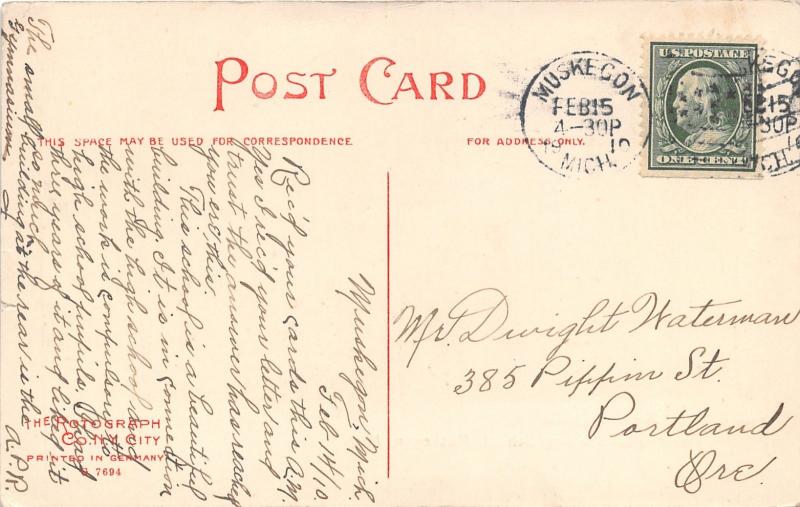 POST CARD
THIS SPACE MAY BE USED FOR CORRESPONDENCE.
FOR ADDRESS ONLY.
MUSKEGON
FEB 15
4-30P
1910
MICH.
U.S. POSTAGE
ONE CENT
Muskegon, Mich.
Feb. 14/10
Rec'd your cards this A.M.
Yes I rec'd your letter and
trust the answer has reached
you ere this.
This school is a beautiful
building. It is in connection
with the high school and
the work is compulsory to
high school pupils. I had
three years of it and liked it
so much.
The small building at the rear is the
gymnasium.
A.P.R.
Mr. Dwight Waterman
385 Pippin St.
Portland
Ore.
THE ROTOGRAPH
CO. N.Y. CITY
PRINTED IN GERMANY
G 7694